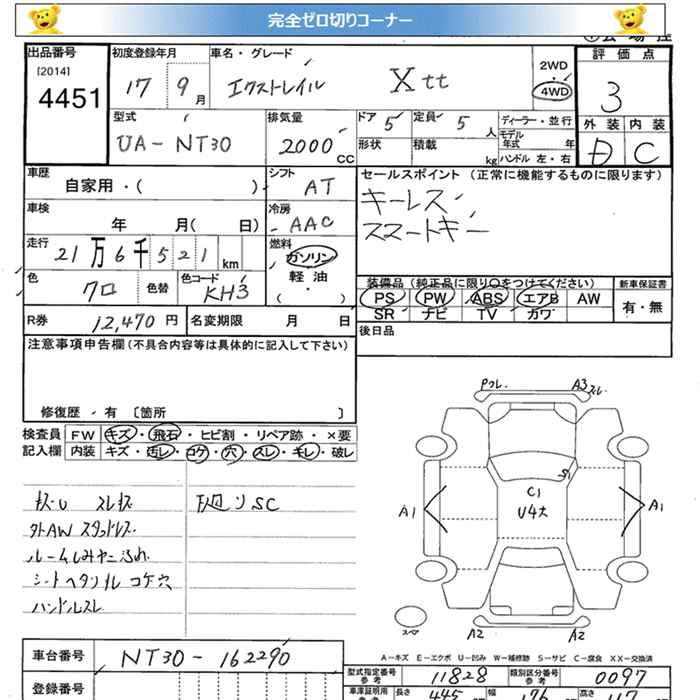 完全ゼロ切りコーナー
出品番号 [2014] 4451
初度登録年月 17 9月
車名・グレード エクストレイル Xtt
2WD
4WD
評価点 3
外装 内装
D C
型式 UA-NT30
排気量 2000 CC
ドア 5
形状
定員 5 人
積載 kg
ディーラー・並行
モデル年式 年
ハンドル 左・右
車歴 自家用・( )
シフト AT
セールスポイント (正常に機能するものに限ります)
キーレス
スマートキー
車検 年 月( 日)
冷房 AAC
走行 21万6千521km
燃料 ガソリン・軽油・( )
色 クロ 色替
色コード KH3
装備品 (純正品に限り○をつけてください)
PS PW ABS エアB AW
SR ナビ TV カワ
新車保証書
有・無
R券 12,470円
名変期限 月 日
後日品
注意事項申告欄(不具合内容等は具体的に記入して下さい)
修復歴・有 〔箇所 〕
検査員記入欄
FW キズ・飛石・ヒビ割・リペア跡・×要
内装 キズ・汚レ・コゲ・穴・スレ・キレ・破レ
キズU スレキズ
外AW スタッドレス
ルームしみヤニ汚れ
シートヘタリ コゲ穴
ハンドルスレ
廻りSC
A3
S1
C1
U4大
A1 A1
スペア
A2 A2
A-キズ E-エクボ U-凹み W-補修跡 S-サビ C-腐食 XX-交換済
車台番号 NT30-162290
登録番号
型式指定番号参考 11828
類別区分番号参考 0097
車庫証明用参考 長さ 445 幅 176 高さ